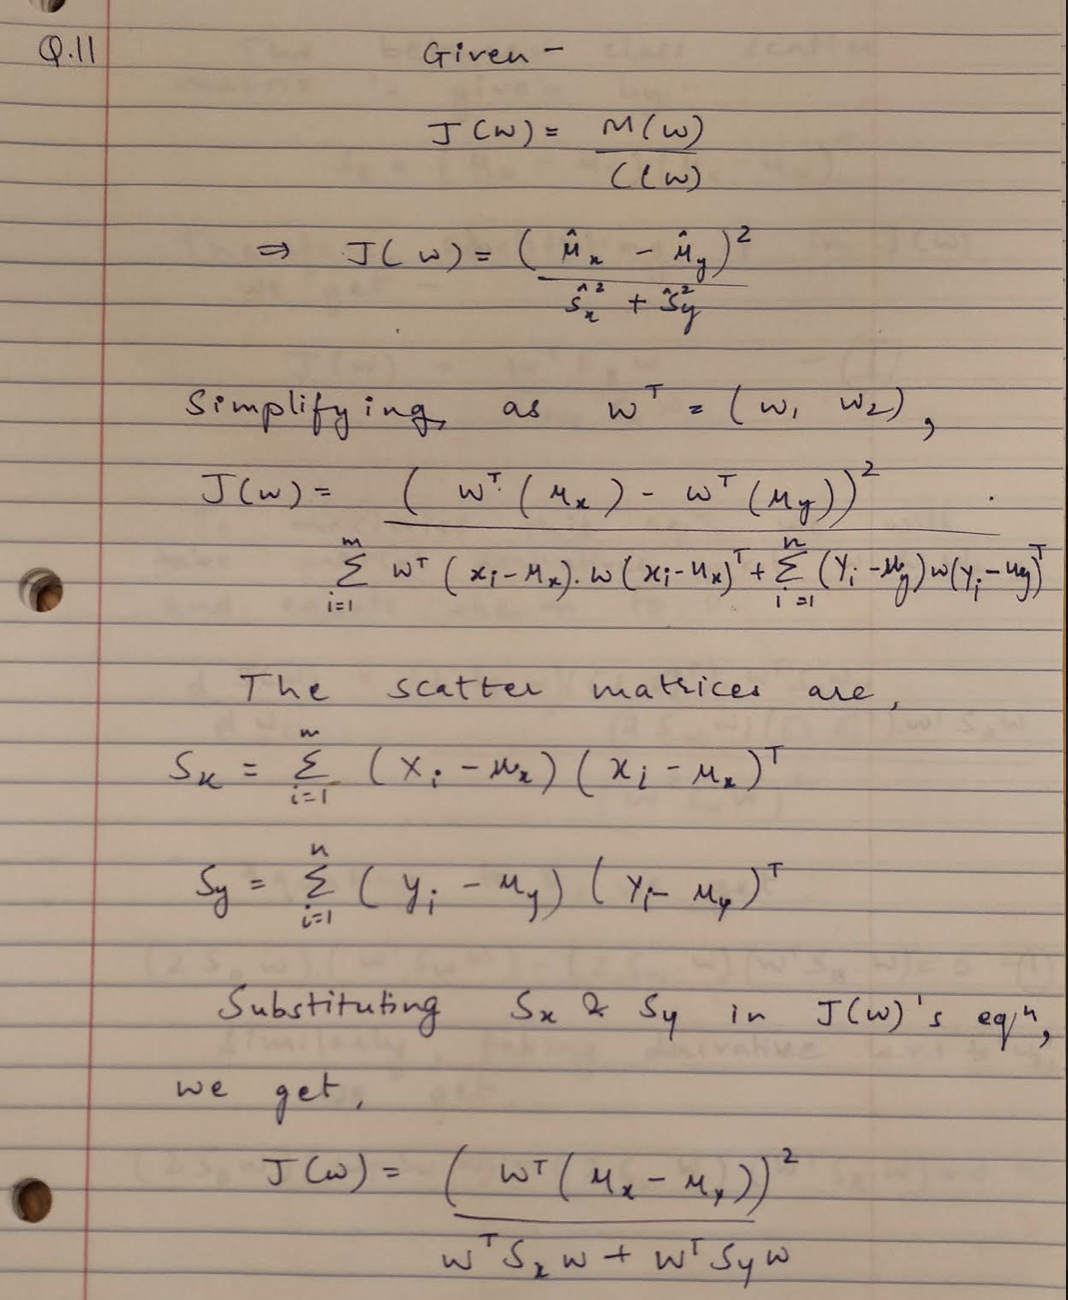 Q.11 Given -
J(w) = M(w) / C(w)
⇒ J(w) = (μ̂x - μ̂y)² / ŝx² + ŝy²
Simplifying, as wᵀ = (w₁ w₂),
J(w) = (wᵀ(μx) - wᵀ(μy))² / Σᵢ₌₁ᵐ wᵀ(xᵢ-μx).w(xᵢ-μx)ᵀ + Σᵢ₌₁ⁿ (Yᵢ-μy)w(yᵢ-μy)ᵀ
The scatter matrices are,
Sx = Σᵢ₌₁ᵐ (Xᵢ - μx)(xᵢ - μx)ᵀ
Sy = Σᵢ₌₁ⁿ (yᵢ - μy)(Yᵢ - μy)ᵀ
Substituting Sx & Sy in J(w)'s eqⁿ,
we get,
J(w) = (wᵀ(μx - μy))² / wᵀSxw + wᵀSyw